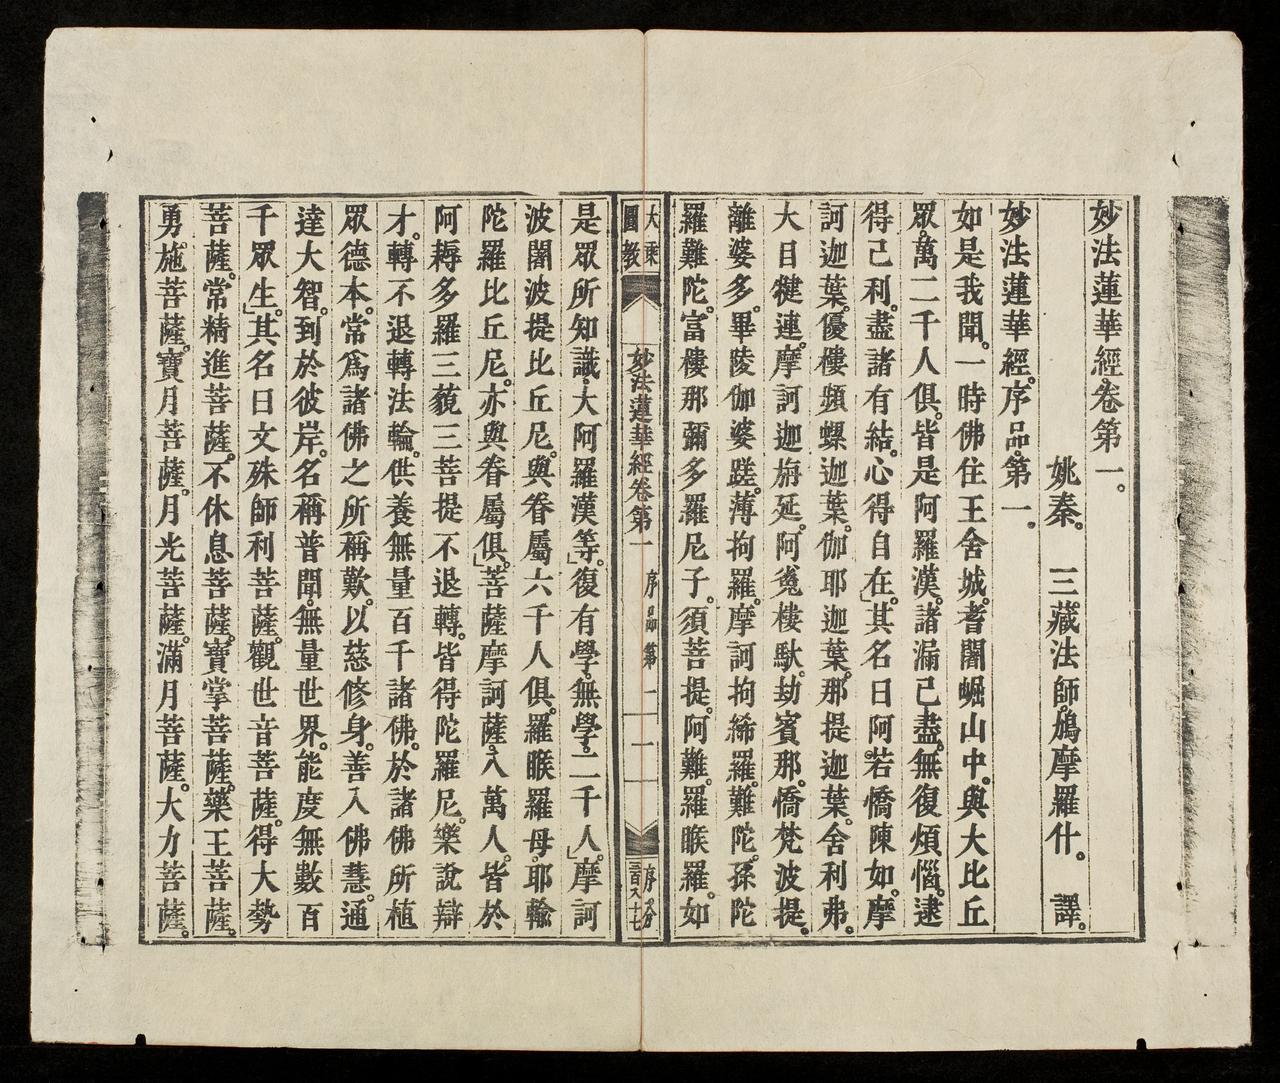 妙法蓮華經卷第一。
姚秦。三藏法師。鳩摩羅什。譯。
妙法蓮華經。序品。第一。
如是我聞。一時佛住王舍城。耆闍崛山中。與大比丘
眾。萬二千人俱。皆是阿羅漢。諸漏已盡。無復煩惱。逮
得己利。盡諸有結。心得自在。其名曰阿。若憍陳如。摩
訶迦葉。優樓頻螺迦葉。伽耶迦葉。那提迦葉。舍利弗。
大目犍連。摩訶迦旃延。阿㝹樓馱。劫賓那。憍梵波提。
離婆多。畢陵伽婆蹉。薄拘羅。摩訶拘絺羅。難陀。孫陀
羅難陀。富樓那彌多羅尼子。須菩提。阿難。羅睺羅。如
大乘
圓教
妙法蓮華經卷第一
序品第一
一
序又分
是眾所知識。大阿羅漢等。」復有學。無學。二千人。」摩訶
波闍波提比丘尼。與眷屬六千人俱。羅睺羅母。耶輸
陀羅比丘尼。亦與眷屬俱。」菩薩摩訶薩。八萬人。皆於
阿耨多羅三藐三菩提不退轉。皆得陀羅尼。樂說辯
才。轉不退轉法輪。供養無量百千諸佛。於諸佛所植
眾德本。常為諸佛之所稱歎。以慈修身。善入佛慧。通
達大智。到於彼岸。名稱普聞。無量世界。能度無數百
千眾生。」其名曰文殊師利菩薩。觀世音菩薩。得大勢
菩薩。常精進菩薩。不休息菩薩。寶掌菩薩。藥王菩薩。
勇。施菩薩。寶月菩薩。月光菩薩。滿月菩薩。大力菩薩。